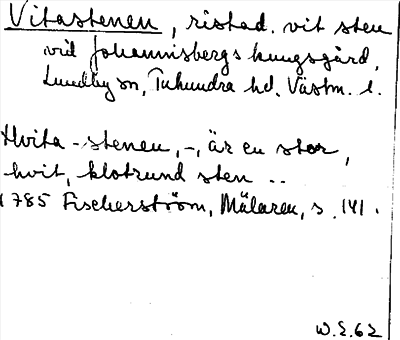 Vitastenen, ristad. vit sten
vid Johannisbergs kungsgård,
Lundby sn, Tuhundra hd. Västm. l.
Hvita-stenen, -, är en stor,
hvit, klotrund sten ..
1785 Fischerström, Mälaren, s. 141.
W.E.62